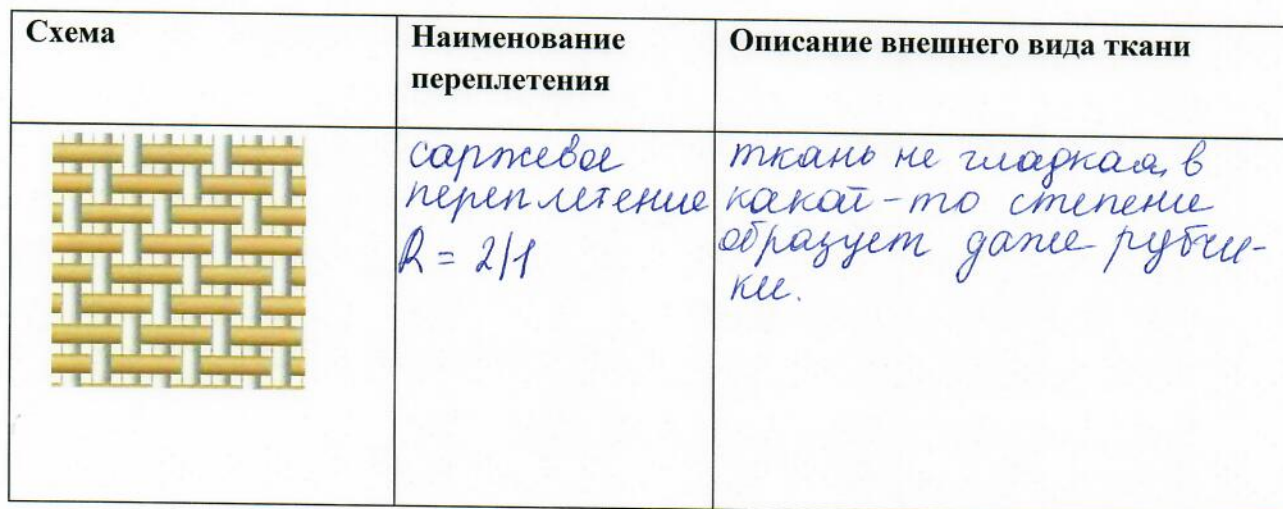 Схема
Наименование
переплетения
Описание внешнего вида ткани
саржевое
переплетение
R = 2/1
ткань не гладкая, в
какой-то степени
образует даже рубчи-
ки.